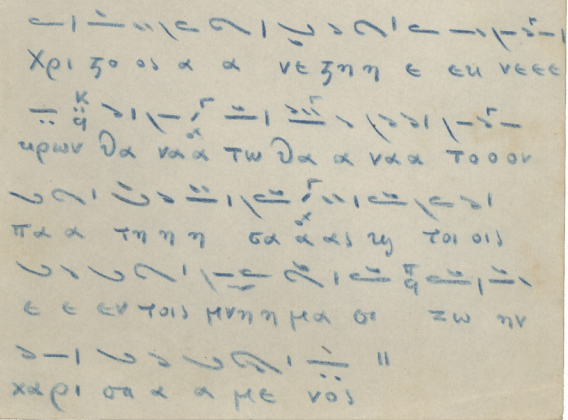 Χρι ςο ος α α νε ςη η ε εκ νεεε
κρων θα ναα τω θα α ναα τοοον
πα α τη η η σα α ας κς τοι οις
ε ε εν τοις μνη η μα σι ζω ην
χαρι σα α α με νος